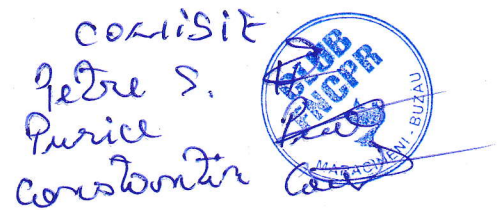 COMISIE
Petre S.
Purice
Constantin
CLUB
FNCPR
MARACINENI - BUZAU